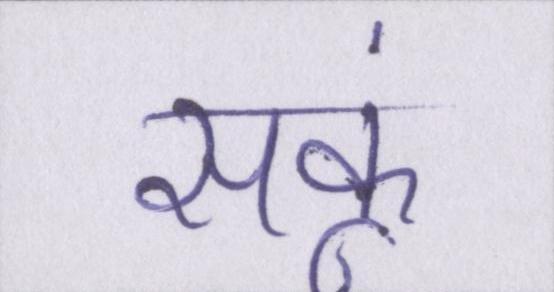 सकूं